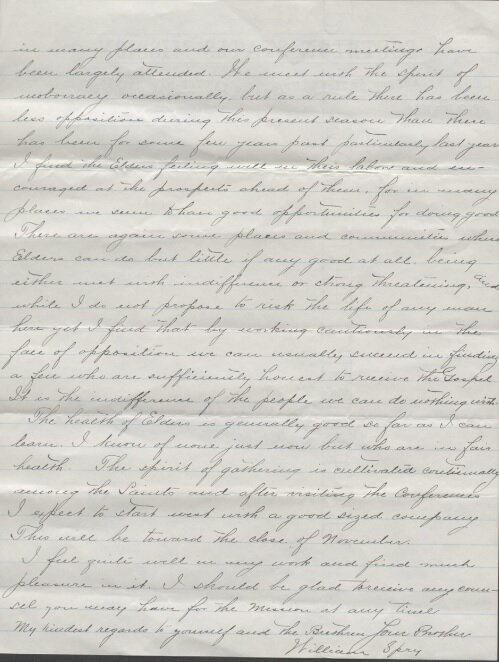 in many places and our conference meetings have
been largely attended. We meet with the spirit of
mobocracy occasionally, but as a rule there has been
less opposition during this present season than there
has been for some few years past particularly last year
I find the Elders feeling well in their labors and en-
couraged at the prospects ahead of them, for in many
places we seem to have good opportunities for doing good
There are again some places and communities where
Elders can do but little if any good at all. being
either met with indifference or strong threatening, and
while I do not propose to risk the life of any man
here yet I find that by working cautiously in the
face of opposition we can usually succeed in finding
a few who are sufficiently honest to receive the Gospel
It is the indifference of the people we can do nothing with.
The health of Elders is generally good so far as I can
learn. I know of none just now but who are in fair
health. The spirit of gathering is cultivated continually
among the Saints and after visiting the Conferences
I expect to start west with a good sized company
This will be toward the close of November.
I feel quite well in my work and find much
pleasure in it. I should be glad to receive any coun-
sel you may have for the Mission at any time
My kindest regards to yourself and the Brethren Your Brother
William Spry